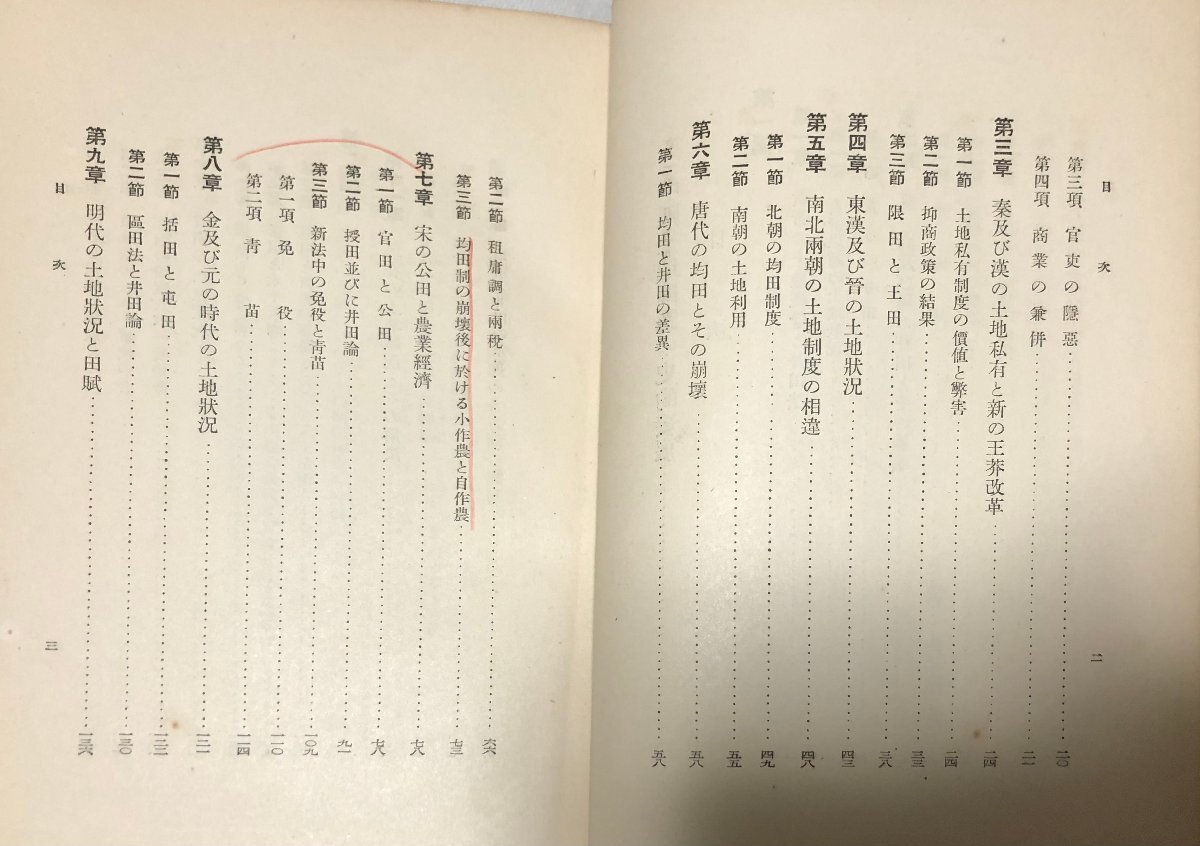 目次
二
第三項 官吏の隱惡 二〇
第四項 商業の兼併 二一
第三章 秦及び漢の土地私有と新の王莽改革 二四
第一節 土地私有制度の價値と弊害 二四
第二節 抑商政策の結果 三三
第三節 限田と王田 三八
第四章 東漢及び晉の土地狀況 四三
第五章 南北兩朝の土地制度の相違 四八
第一節 北朝の均田制度 四九
第二節 南朝の土地利用 五五
第六章 唐代の均田とその崩壞 五八
第一節 均田と井田の差異 五八
第二節 租庸調と兩稅 六六
第三節 均田制の崩壞後に於ける小作農と自作農 七三
第七章 宋の公田と農業經濟 七八
第一節 官田と公田 七八
第二節 授田並びに井田論 九一
第三節 新法中の免役と靑苗 一〇九
第一項 免役 一一〇
第二項 靑苗 一一四
第八章 金及び元の時代の土地狀況 一二一
第一節 括田と屯田 一二二
第二節 區田法と井田論 一三〇
第九章 明代の土地狀況と田賦 一三六
目次
三